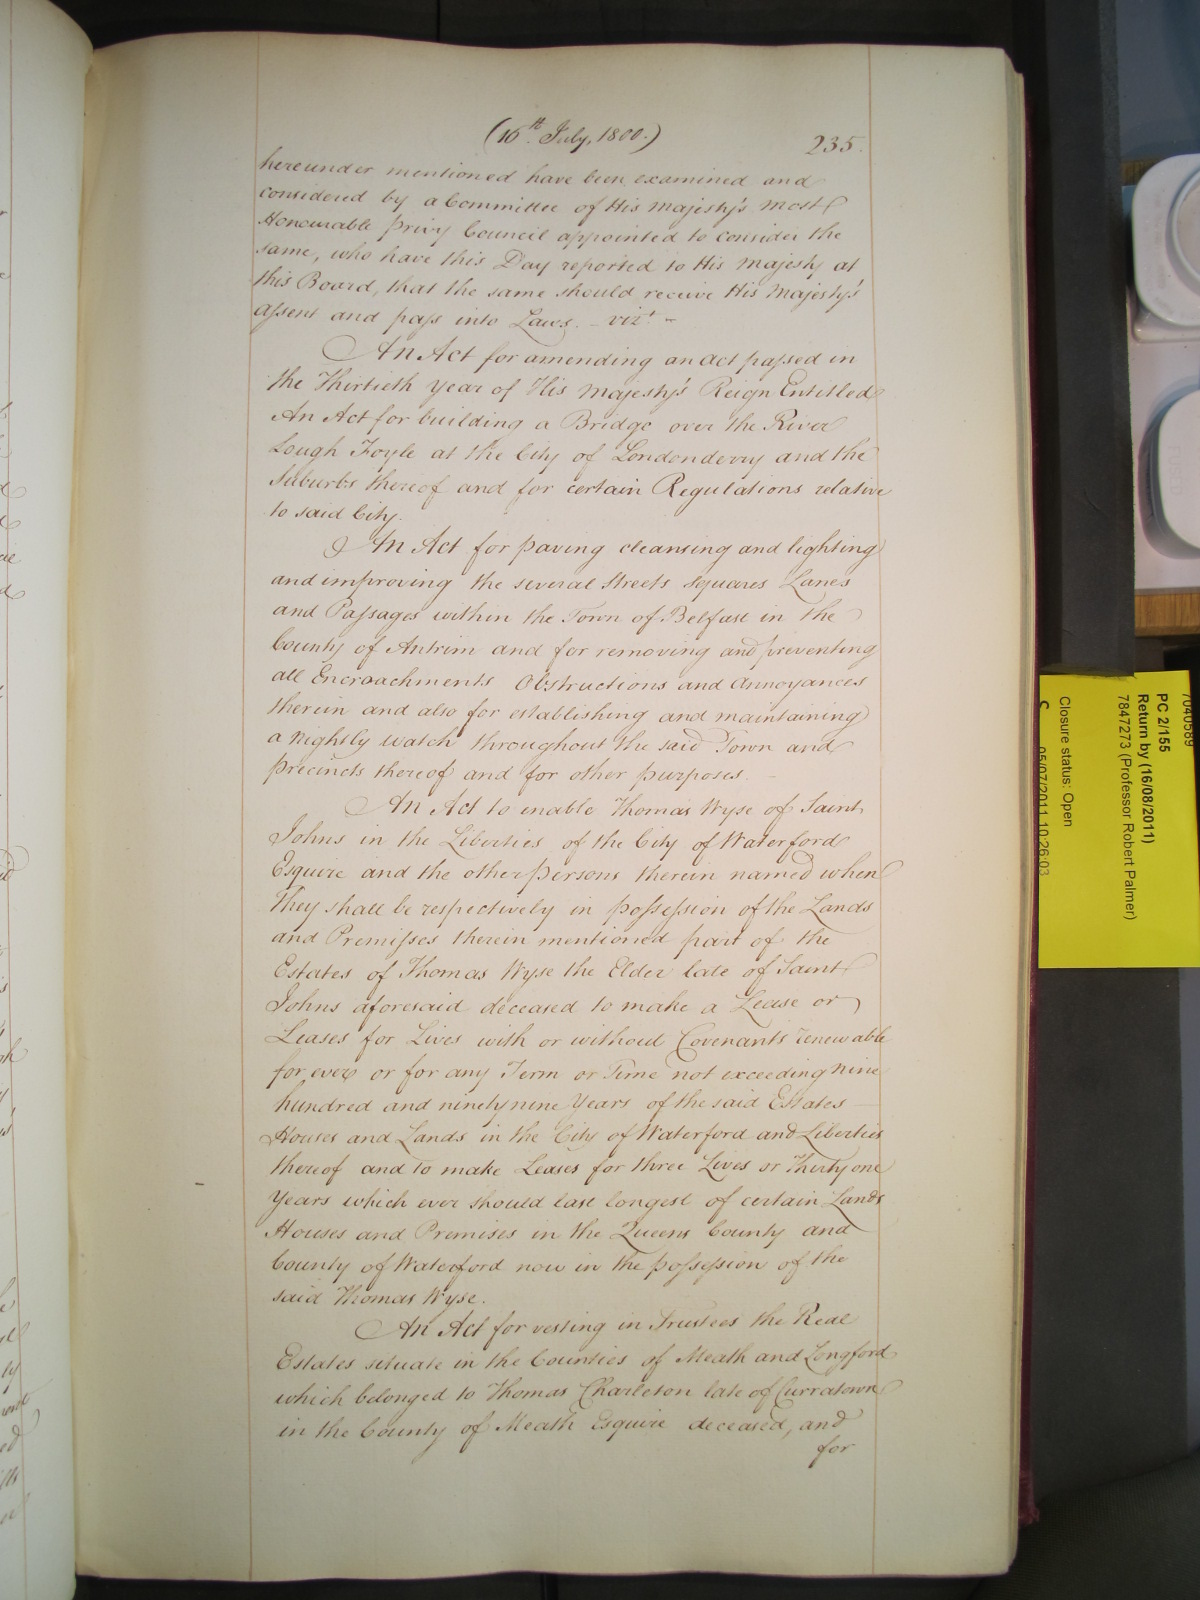 (16th July, 1800.)
235.
hereunder mentioned have been examined and
considered by a Committee of His Majesty's Most
Honourable Privy Council appointed to consider the
same, who have this Day reported to His Majesty at
this Board, that the same should receive His Majesty's
assent and pass into Laws. – vizt. –
An Act for amending an act passed in
the Thirtieth Year of His Majesty's Reign Entitled
An Act for building a Bridge over the River
Lough Foyle at the City of Londonderry and the
Suburbs thereof and for certain Regulations relative
to said City.
An Act for paving cleansing and lighting
and improving the several Streets Squares Lanes
and Passages within the Town of Belfast in the
County of Antrim and for removing and preventing
all Encroachments Obstructions and Annoyances
therein and also for establishing and maintaining
a Nightly watch throughout the said Town and
precincts thereof and for other purposes.
An Act to enable Thomas Wyse of Saint
Johns in the Liberties of the City of Waterford
Esquire and the other persons therein named when
they shall be respectively in possession of the Lands
and Premisses therein mentioned part of the
Estates of Thomas Wyse the Elder late of Saint
Johns aforesaid deceased to make a Lease or
Leases for Lives with or without Covenants renewable
for ever or for any Term or Time not exceeding nine
hundred and ninety nine Years of the said Estates
Houses and Lands in the City of Waterford and Liberties
thereof and to make Leases for three Lives or Thirty one
Years which ever should last longest of certain Lands
Houses and Premises in the Queens County and
County of Waterford now in the possession of the
said Thomas Wyse.
An Act for vesting in Trustees the Real
Estates situate in the Counties of Meath and Longford
which belonged to Thomas Charleton late of Curratown
in the County of Meath Esquire deceased, and
for
PC 2/155
Return by (16/08/2011)
7847273 (Professor Robert Palmer)
Closure status: Open
05/07/2011 10:26:03